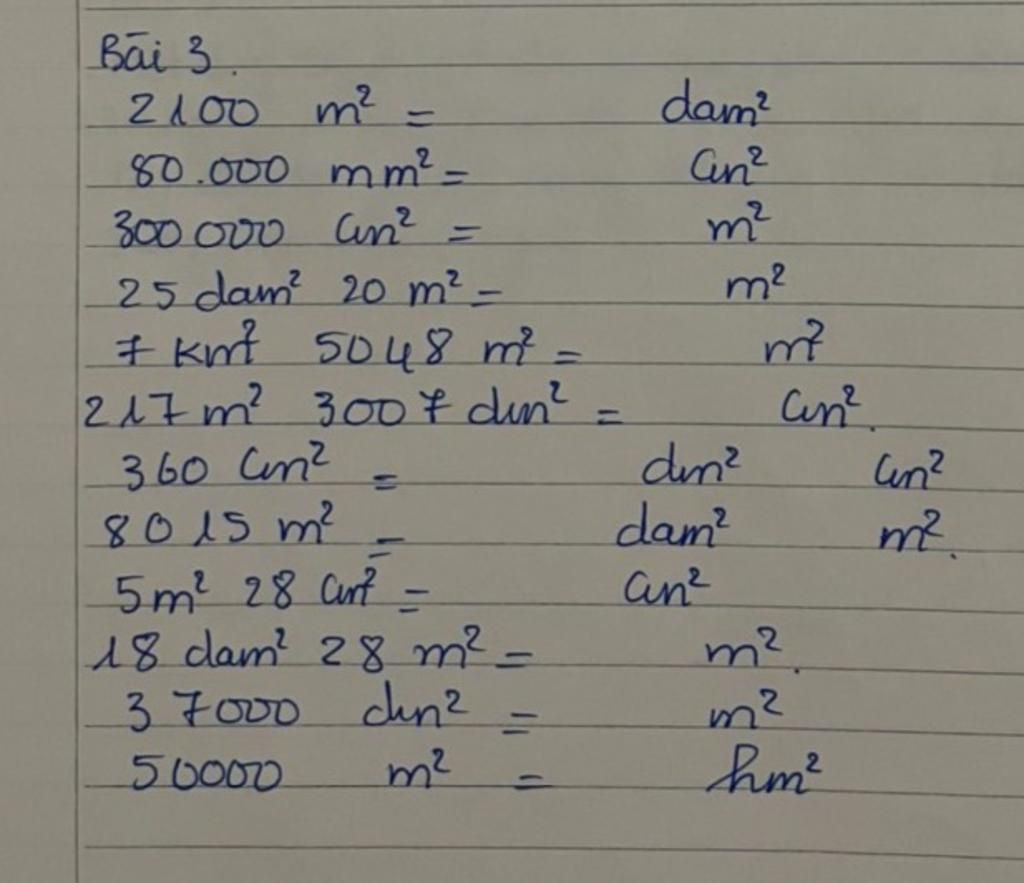 Bài 3.
2100 m² = dam²
80.000 mm² = cm²
300000 cm² = m²
25 dam² 20 m² = m²
7 km² 5048 m² = m²
217 m² 3007 dm² = cm².
360 cm² = dm² cm²
8015 m² = dam² m².
5m² 28 cm² = cm²
18 dam² 28 m² = m².
37000 dm² = m²
50000 m² = hm²